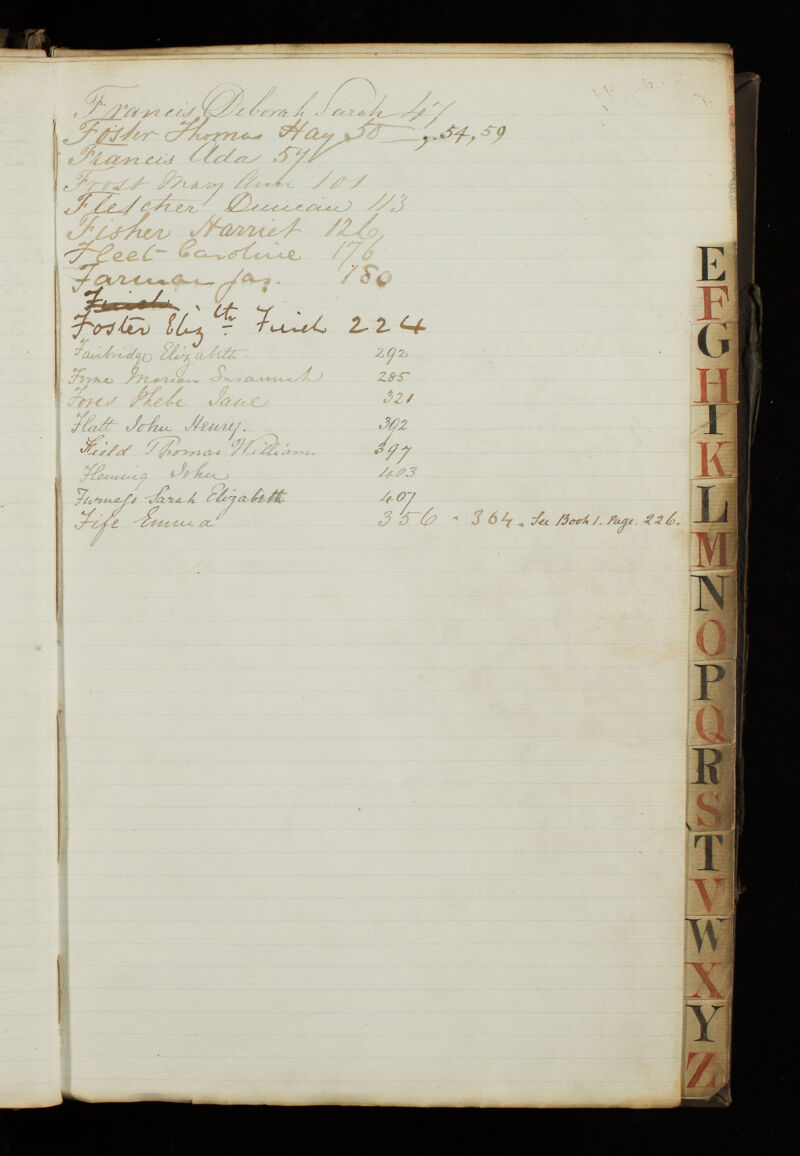 Francis Deborah Sarah 47
Foster Thomas Hay 50 — , 54, 59
Francis Ada 57
Frost Mary Ann 101
Fletcher Duncan 113
Fisher Harriet 126
Fleet Caroline 176
Farman Jas. 180
Finch
Foster Eliz th Finch 224
Fairbridge Elizabeth. 292
Marian Susannah 285
Fores Phebe Jane 321
Flatt John Henry. 392
Field Thomas William 397
Fleming John 403
Furness Sarah Elizabeth 407
Fife Emma 356 - 364. See Book 1. Page. 226.
E
F
G
H
I
K
L
M
N
O
P
Q
R
S
T
V
W
X
Y
Z